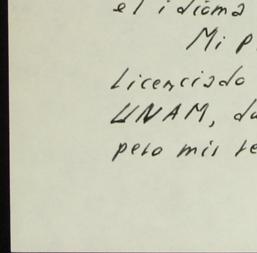 el idioma
Mi p
Licenciado
UNAM, da
pero mis te